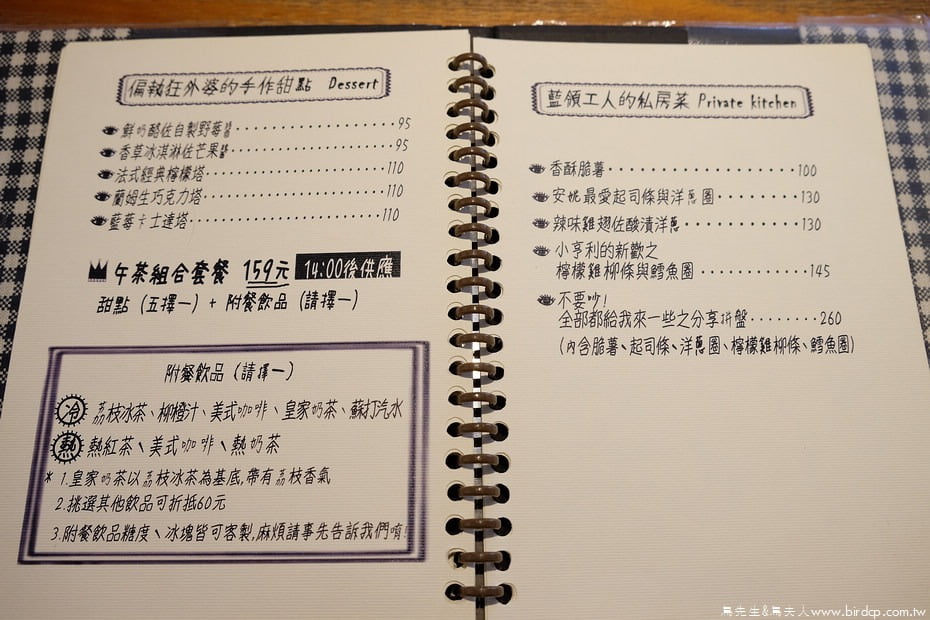 偏執狂外婆的手作甜點 Dessert
鮮奶酪佐自製野莓醬 95
香草冰淇淋佐芒果醬 95
法式經典檸檬塔 110
蘭姆生巧克力塔 110
藍莓卡士達塔 110
午茶組合套餐 159元 14:00後供應
甜點（五擇一）+ 附餐飲品（請擇一）
附餐飲品（請擇一）
冷 荔枝冰茶、柳橙汁、美式咖啡、皇家奶茶、蘇打汽水
熱 熱紅茶、美式咖啡、熱奶茶
* 1.皇家奶茶以荔枝冰茶為基底,帶有荔枝香氣
2.挑選其他飲品可折抵60元
3.附餐飲品糖度、冰塊皆可客製,麻煩請事先告訴我們唷!
藍領工人的私房菜 Private kitchen
香酥脆薯 100
安妮最愛起司條與洋蔥圈 130
辣味雞翅佐酸漬洋蔥 130
小亨利的新歡之
檸檬雞柳條與鱈魚圈 145
不要吵!
全部都給我來一些之分享拼盤 260
(內含脆薯、起司條、洋蔥圈、檸檬雞柳條、鱈魚圈)
鳥先生&鳥夫人www.birdcp.com.tw